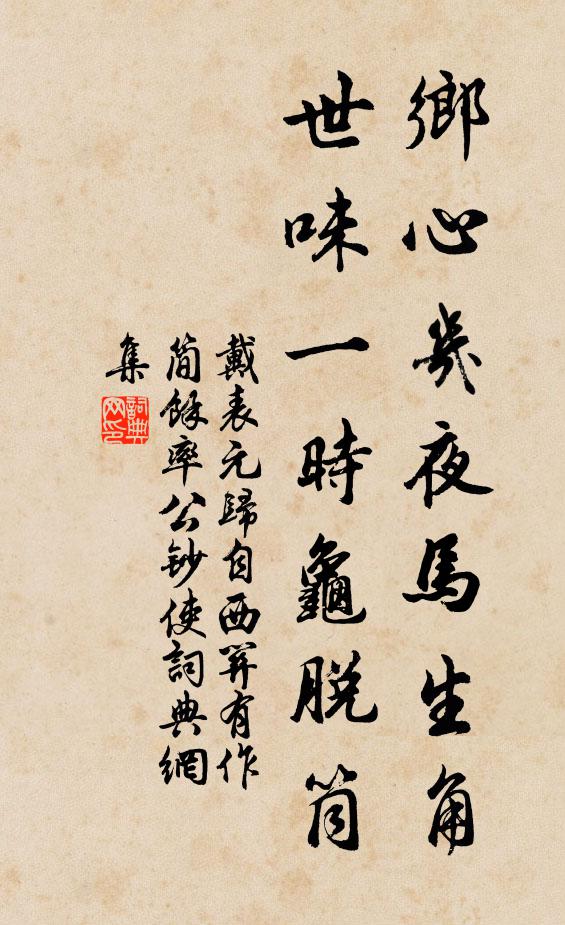 鄉心幾夜馬生角
世味一時龜脫筒
戴表元歸自西羿有作
簡餘率公鈔使詞典網
集
詞典
网印